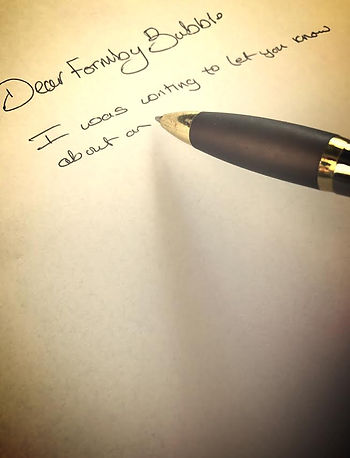 Dear Formby Bubble
I was writing to let you know
about an